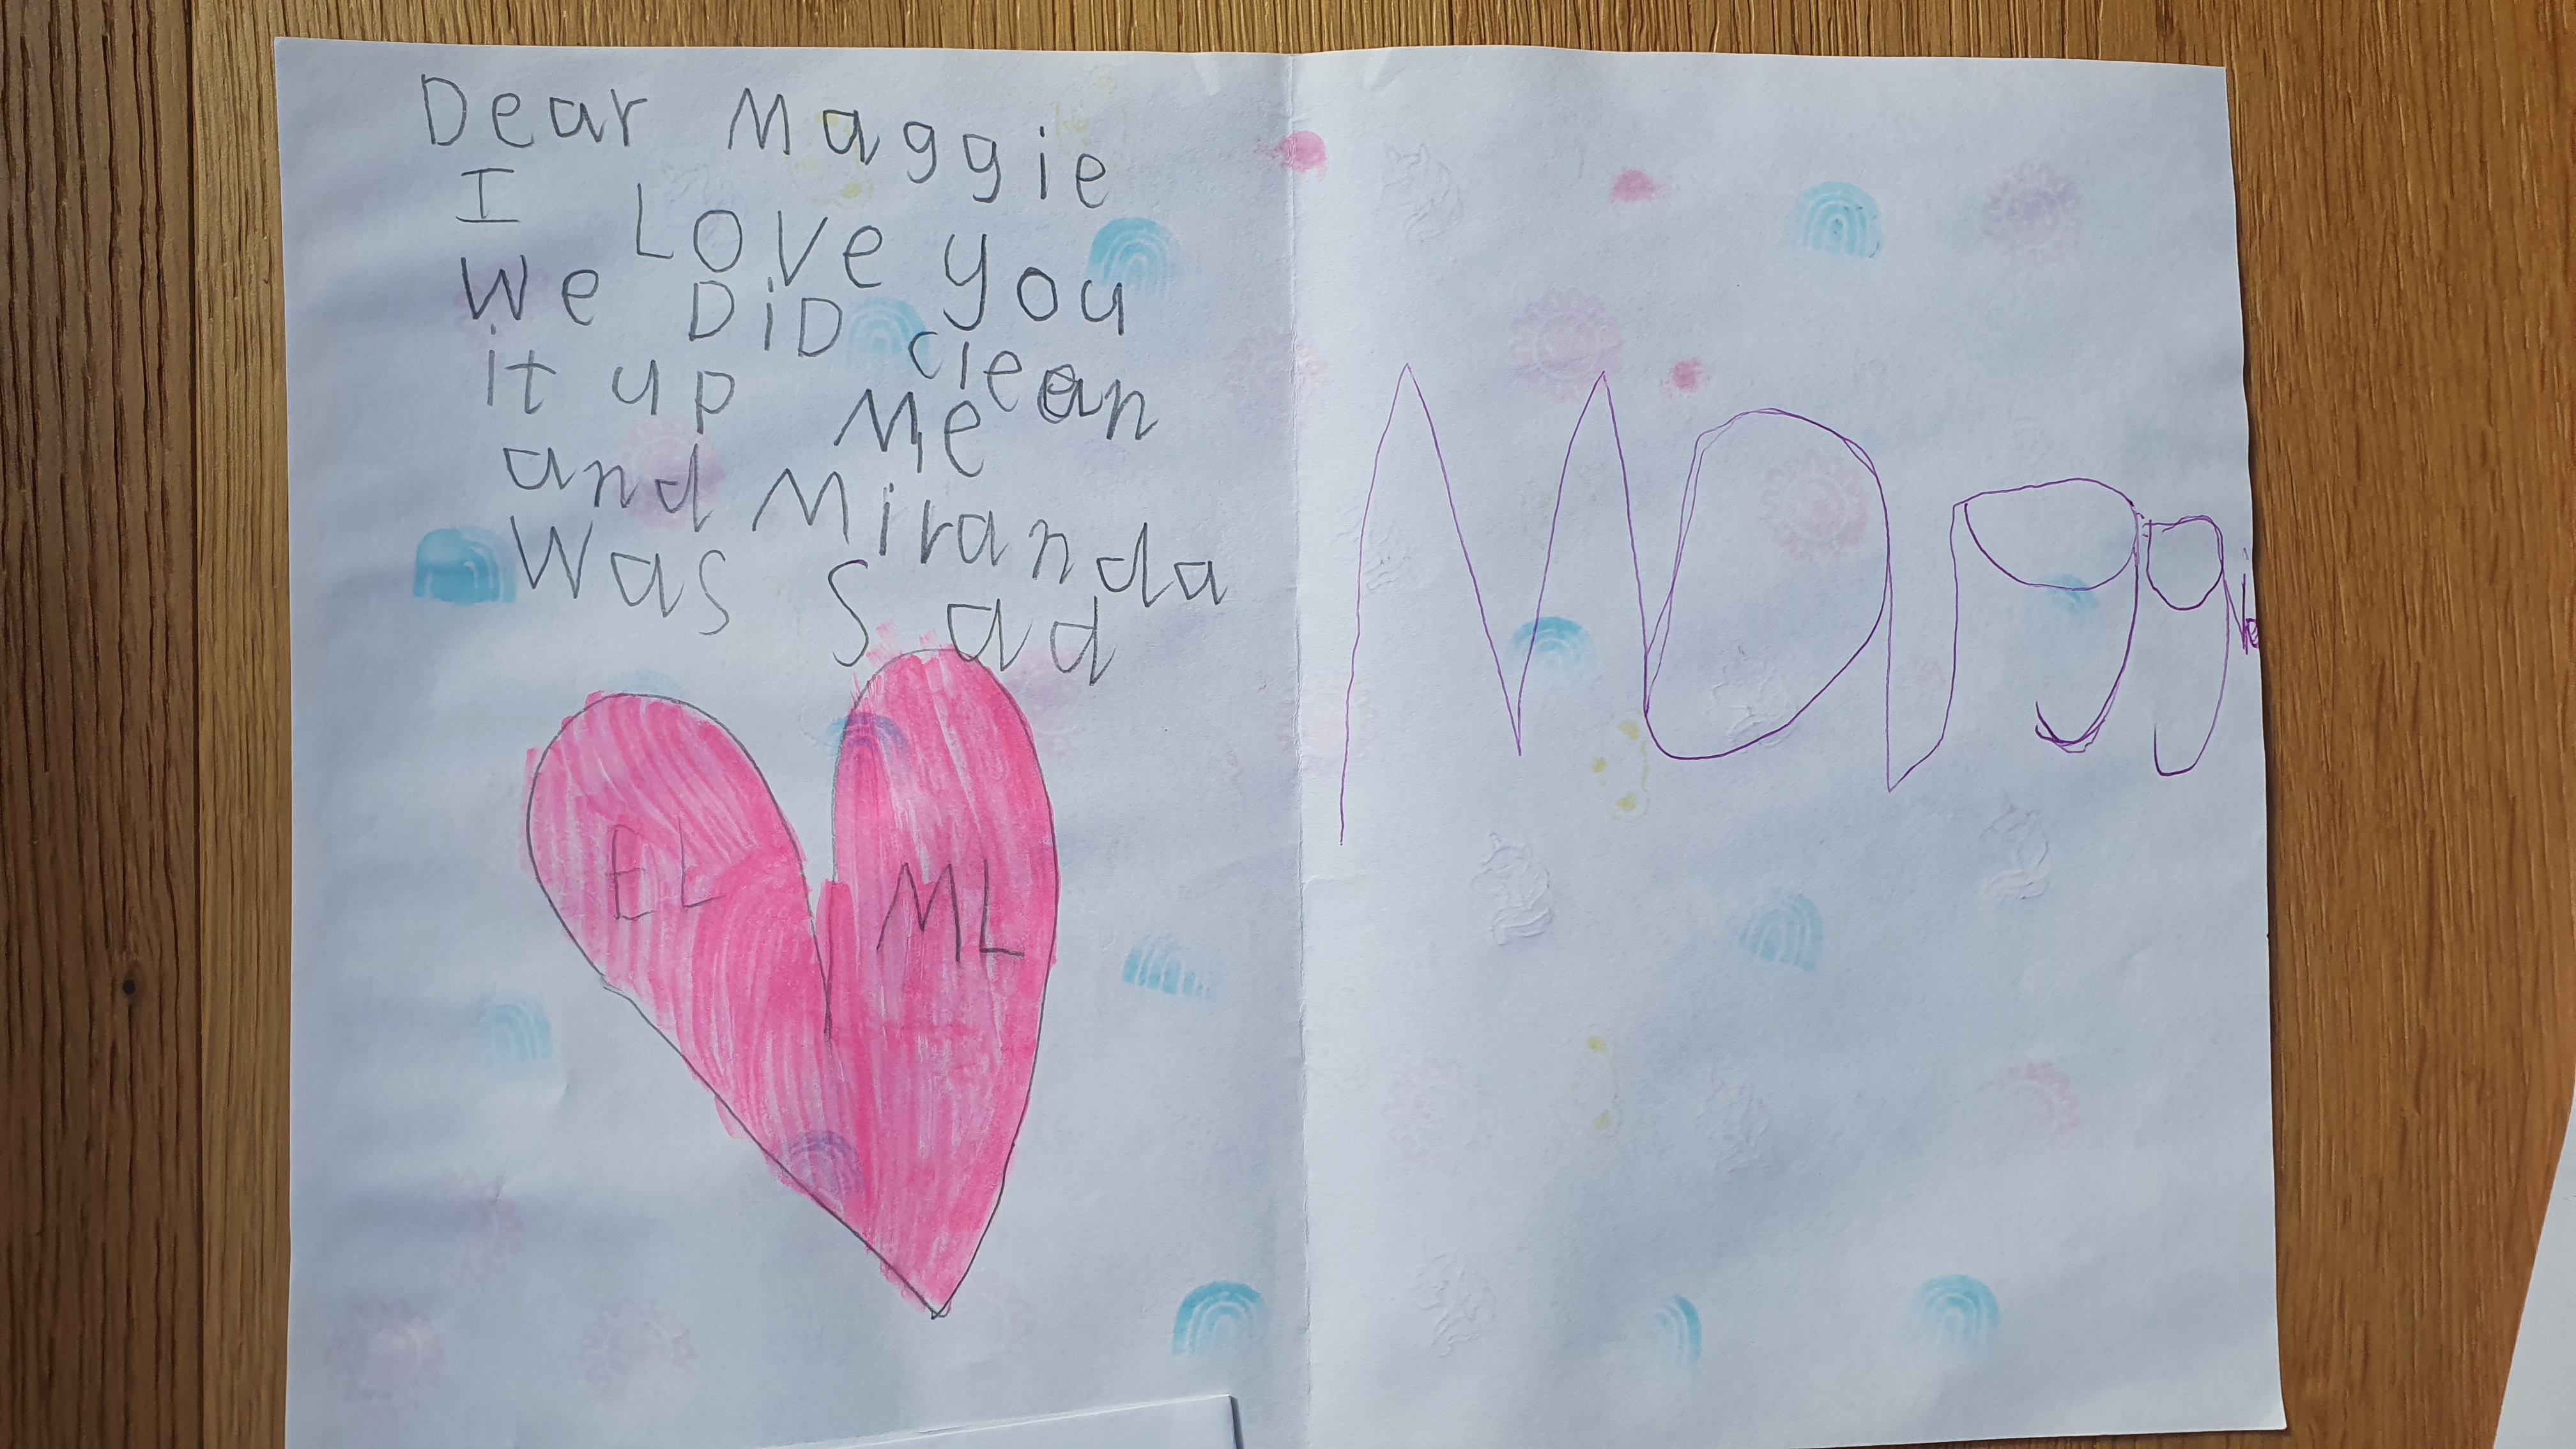 Dear Maggie
I Love you
We DiD clean
it up Me
and Miranda
Was Sad
EL ML
Maggie